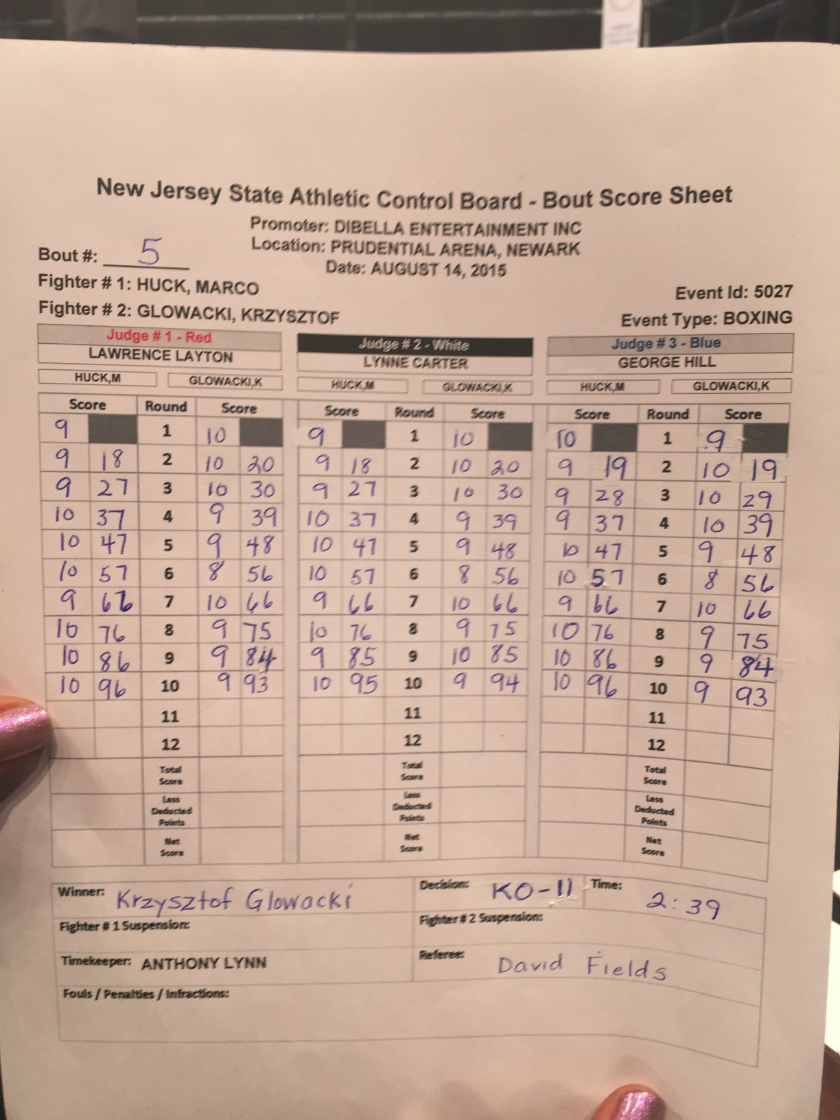 New Jersey State Athletic Control Board - Bout Score Sheet
Promoter: DIBELLA ENTERTAINMENT INC
Bout #: 5 Location: PRUDENTIAL ARENA, NEWARK
Date: AUGUST 14, 2015
Fighter # 1: HUCK, MARCO Event Id: 5027
Fighter # 2: GLOWACKI, KRZYSZTOF Event Type: BOXING
Judge # 1 - Red Judge # 2 - White Judge # 3 - Blue
LAWRENCE LAYTON LYNNE CARTER GEORGE HILL
HUCK,M GLOWACKI,K HUCK,M GLOWACKI,K HUCK,M GLOWACKI,K
Score Round Score Score Round Score Score Round Score
9 1 10 9 1 10 10 1 9
9 18 2 10 20 9 18 2 10 20 9 19 2 10 19
9 27 3 10 30 9 27 3 10 30 9 28 3 10 29
10 37 4 9 39 10 37 4 9 39 9 37 4 10 39
10 47 5 9 48 10 47 5 9 48 10 47 5 9 48
10 57 6 8 56 10 57 6 8 56 10 57 6 8 56
9 66 7 10 66 9 66 7 10 66 9 66 7 10 66
10 76 8 9 75 10 76 8 9 75 10 76 8 9 75
10 86 9 9 84 9 85 9 10 85 10 86 9 9 84
10 96 10 9 93 10 95 10 9 94 10 96 10 9 93
11 11 11
12 12 12
Total Score Total Score Total Score
Less Deducted Points Less Deducted Points Less Deducted Points
Net Score Net Score Net Score
Winner: Krzysztof Glowacki Decision: KO-11 Time: 2:39
Fighter # 1 Suspension: Fighter # 2 Suspension:
Timekeeper: ANTHONY LYNN Referee: David Fields
Fouls / Penalties / Infractions: